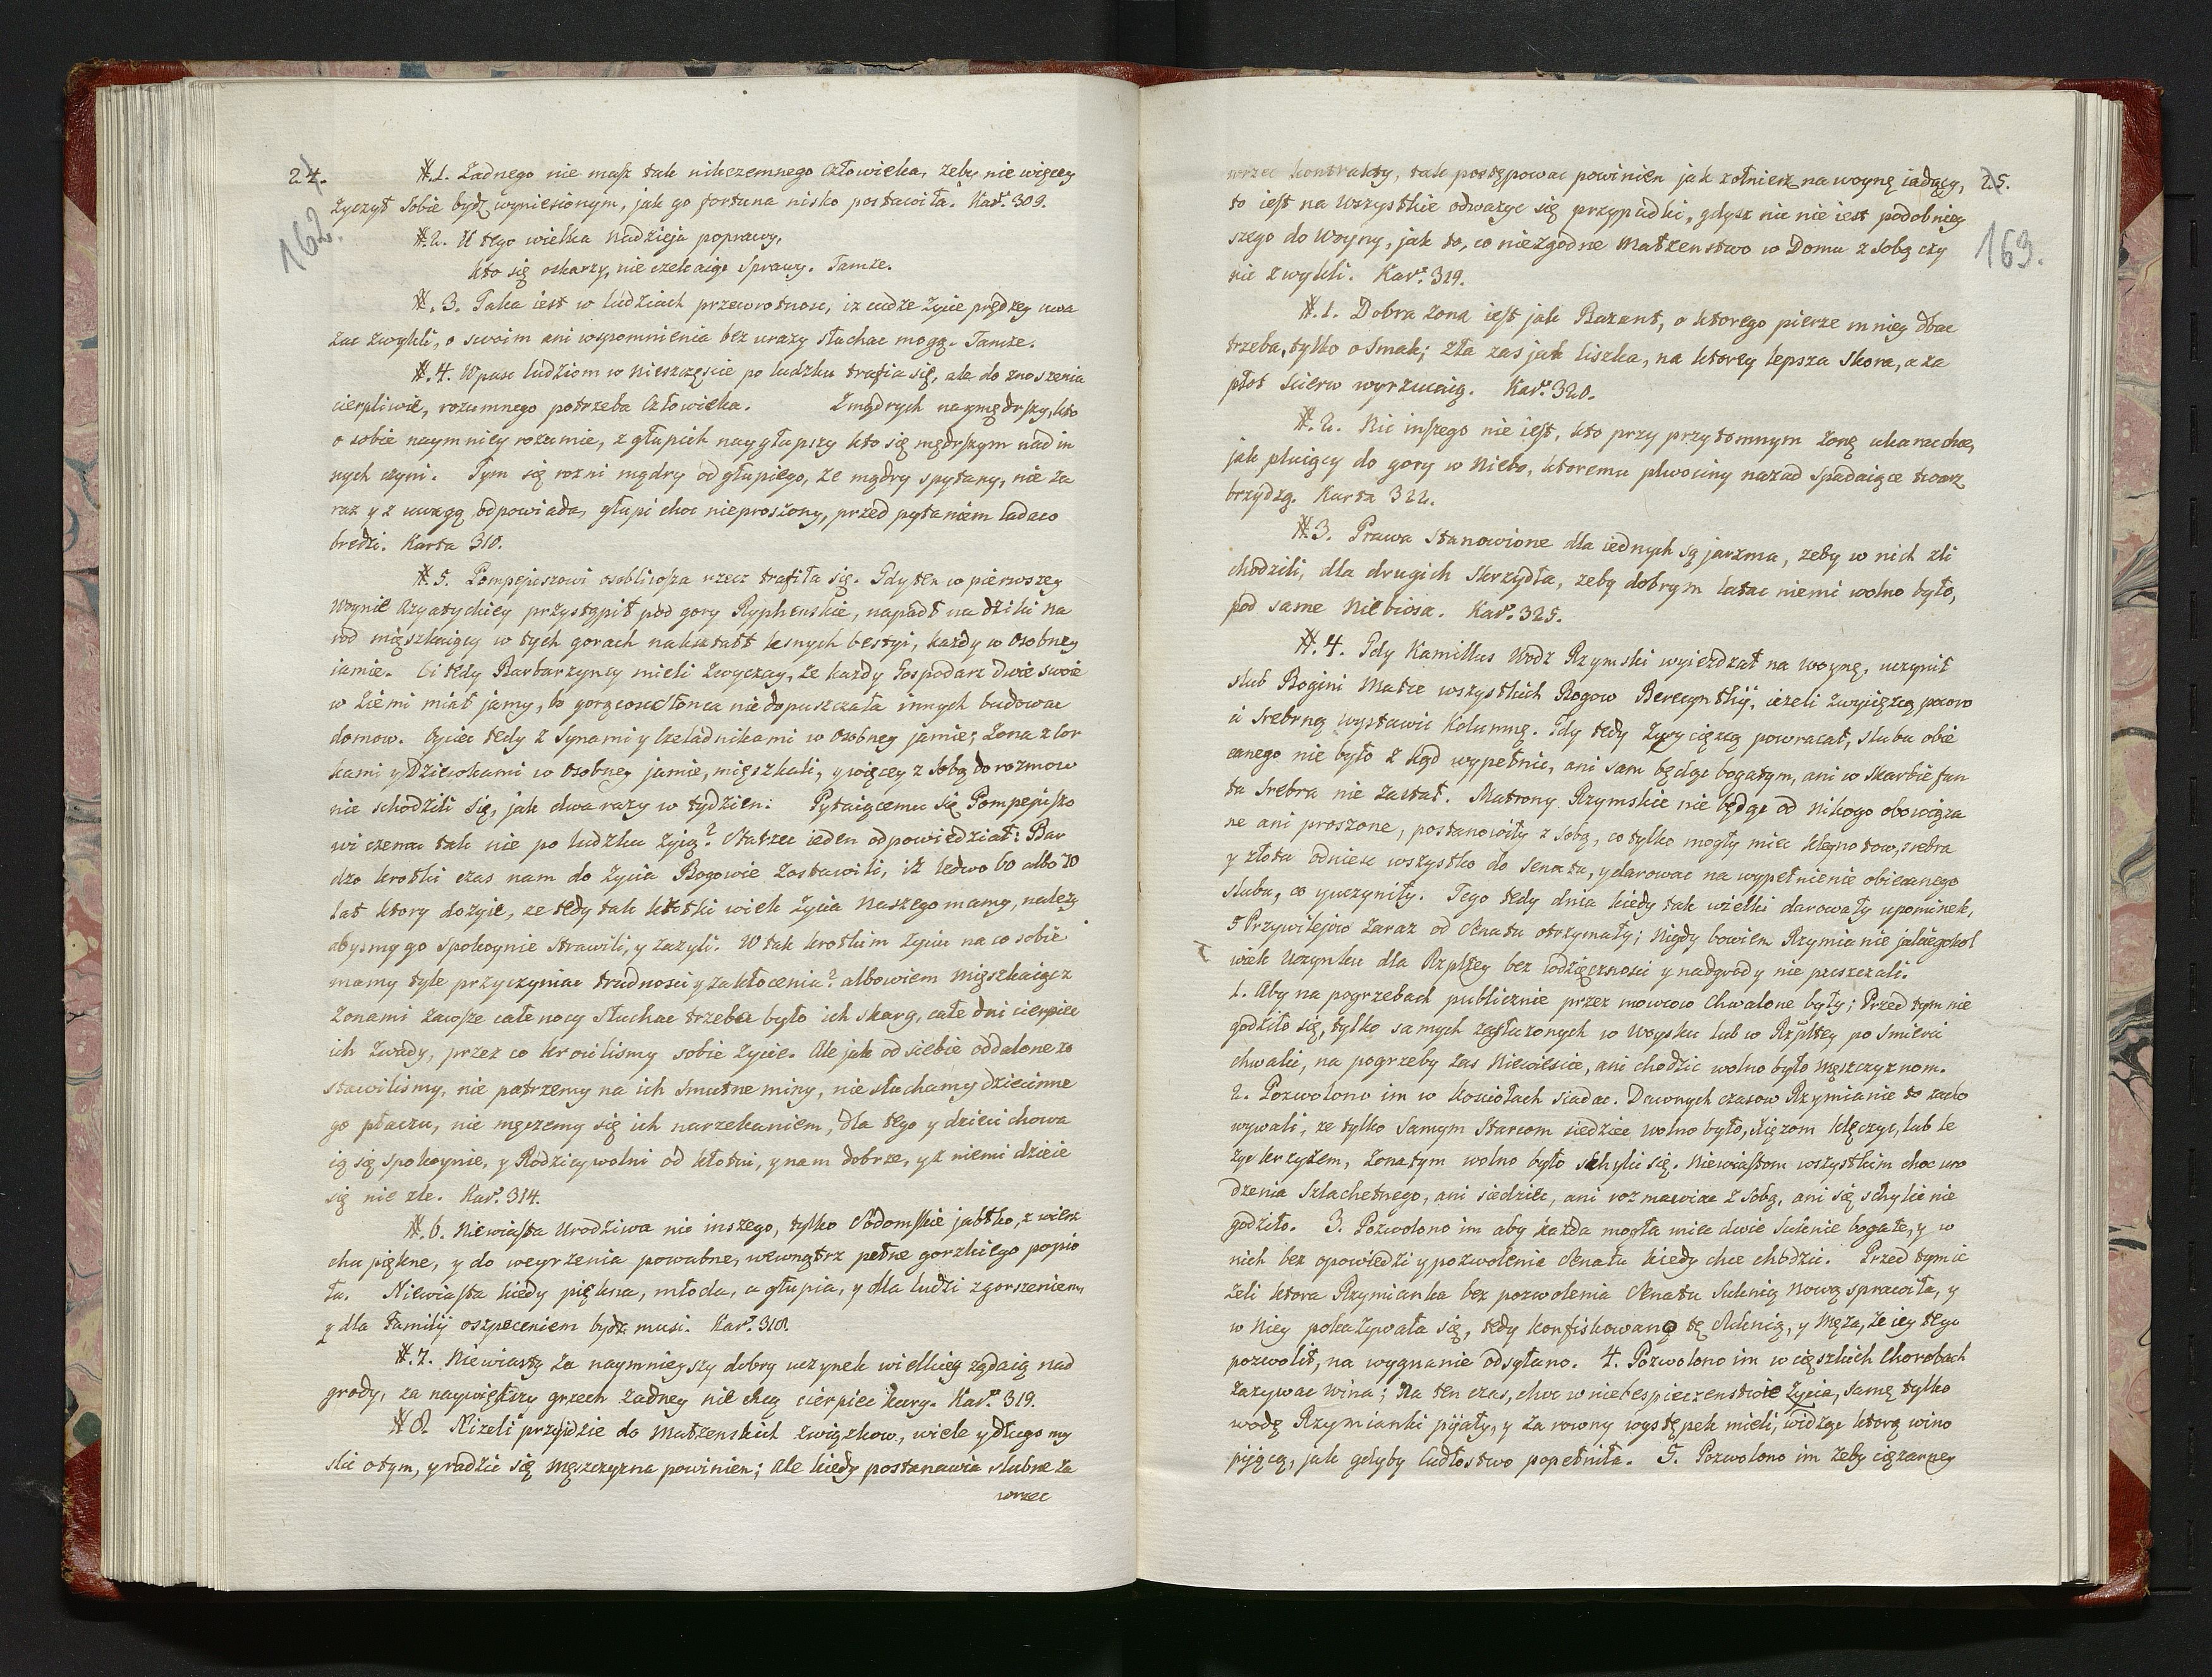 24.
162.
#.1. Zadnego nie masz tak nikczemnego Człowieka, zeby nie więcey
zyczył sobie bydź wyniesionym, jak go fortuna nisko postawiła. Kar: 309.
#.2. U tego wielka nadzieja poprawy,
kto się oskarzy, nie czekaiąc sprawy. Tamze.
#.3. Taka iest w ludziach przewrotnosc, iz cudze zycie prędzey uwa
zac zwykli, o swoim ani wspomnienia bez urazy słuchac mogą. Tamze.
#.4. Wpasc ludziom w nieszczęscie po ludzku trafia się, ale do znoszenia
cierpliwie, rozumnego potrzeba Człowieka. Z mądrych naymędrszy, kto
o sobie naymniey rozumie, z głupich naygłupszy kto się mędrszym nad in
nych czyni. Tym się rozni mądry od głupiego, ze mądry spytany, nie za
raz y z uwagą odpowiada, głupi choc nieproszony, przed pytaniem ladaco
bredzi. Karta 310.
#.5. Pompejuszowi osobliwsza rzecz trafiła się. Gdy ten w pierwszey
Woynie Azyatyckiey przystąpił pod gory Rypheuskie, napadł na dziki na
rod mięszkaiący w tych gorach nakształt lesnych bestyi, kazdy w osobney
iamie. Ci tedy Barbarzyncy mieli zwyczay, ze kazdy Gospodarz dwie swoie
w ziemi miał jamy, bo gorącosc słonca nie dopuszczała innych budowac
domow. Oyciec tedy z Synami y Czeladnikami w osobney jamie; Zona z Cor
kami y Dziewkami w osobney jamie, mięszkali, y więcey z sobą do rozmow
nie schodzili się, jak dwa razy w tydzien: Pytaiącemu się Pompejuszo
wi czemu tak nie po ludzku zyią? Starzec ieden odpowiedział: Bar
dzo krotki czas nam do zycia Bogowie zostawili, iz ledwo 60 albo 70
lat ktory dozyie, ze tedy tak krotki wiek zycia naszego mamy, nalezy
abysmy go spokoynie strawili, y zazyli. W tak krotkim zyciu na co sobie
mamy tyle przyczyniac trudnosci y zakłocenia? albowiem mięszkaiąc z
Zonami zawsze całe nocy słuchac trzeba było ich skarg, całe dni cierpiec
ich zwady, przez co krocilismy sobie zycie. Ale jak od siebie oddalone zo
stawilismy, nie patrzemy na ich smutne miny, nie słuchamy dziecinne
go płaczu, nie męczemy się ich narzekaniem, dla tego y dzieci chowa
ią się spokoynie, y Rodzicy wolni od kłotni, y nam dobrze, y z niemi dzieie
się nie zle. Kar: 314.
#.6. Niewiasta urodziwa nic inszego, tylko Sodomskie jabłko, z wierz
chu piękne, y do weyrzenia powabne, wewnątrz pełne gorzkiego popio
łu. Niewiasta kiedy piękna, młoda, a głupia, y dla ludzi zgorszeniem,
y dla Familij oszpeceniem bydz musi. Kar: 318.
#.7. Niewiasty za naymnieyszy dobry uczynek wielkiey ządaią nad
grody, za naywiększy grzech zadney nie chcą cierpiec kary. Kar: 319.
#.8. Nizeli przyidzie do Małzenskich związkow, wiele y długo my
slic o tym, y radzic się męszczyzna powinien; ale kiedy postanawia slubne za
wrzec
25.
163.
wrzec kontrakty, tak postępowac powinien jak zołnierz na woynę iadący,
to iest na wszystkie odwazyc się przypadki, gdysz nic nie iest podobniey
szego do Woyny, jak to, co niezgodne Małzenstwo w Domu z sobą czy
nic zwykli. Kar: 319.
#.1. Dobra Zona iest jak Bazant, o ktorego pierze mniey dbac
trzeba, tylko o smak; zła zas jak liszka, na ktorey lepsza skora, a za
płot scierw wyrzucaią. Kar: 320.
#.2. Nic inszego nie iest, kto przy przytomnym zonę ukarac chce,
jak pluiący do gory w Niebo, ktoremu plwociny nazad spadaiące twarz
brzydzą. Karta 322.
#.3. Prawa stanowione dla iednych są jarzma, zeby w nich zli
chodzili, dla drugich skrzydła, zeby dobrym latac niemi wolno było,
pod same Niebiosa. Kar: 325.
#.4. Gdy Kamillus Wodz Rzymski wyiezdzał na woynę, uczynił
slub Bogini Matce wszystkich Bogow Berecynthij, iezeli zwycięzcą powro
ci srebrną wystawic Kolumnę. Gdy tedy zwycięzcą powracał, slubu obie
canego nie było z kąd wypełnic, ani sam będąc bogatym, ani w skarbie fun
ta srebra nie zastał. Matrony Rzymskie nie będąc od nikogo obowiąza
ne ani proszone, postanowiły z sobą, co tylko mogły miec kleynotow, srebra
y złota odniesc wszystko do Senatu, y darowac na wypełnienie obiecanego
slubu, co y uczyniły. Tego tedy dnia kiedy tak wielki darowały upominek,
5 Przywilejow zaraz od Senatu otrzymały; Nigdy bowiem Rzymianie jakiegokol
wiek uczynku dla Rzpltey bez wdzięcznosci y nadgrody nie puszczali.
1. Aby na pogrzebach publicznie przez mowcow chwalone były; Przed tym nie
godziło się, tylko samych zasłuzonych w Woysku lub w Rzpltey po smierci
chwalic, na pogrzeby zas Niewiescie, ani chodzic wolno było męszczyznom.
2. Pozwolono im w kosciołach siadac. Dawnych czasow Rzymianie to zacho
wywali, ze tylko samym starcom siedziec wolno było, Xięzom klęczyc, lub le
zyc krzyzem, zonatym wolno było schylic się. Niewiastom wszystkim choc uro
dzenia szlachetnego, ani siedziec, ani rozmawiac z sobą, ani się schylic nie
godziło. 3. Pozwolono im aby kazda mogła miec dwie suknie bogate, y w
nich bez opowiedzi y pozwolenia Senatu kiedy chce chodzic. Przed tym ie
zeli ktora Rzymianka bez pozwolenia Senatu suknią nową sprawiła, y
w niey pokazywała się, tedy konfiskowano tę suknią, y męza, ze iey tego
pozwolił, na wygnanie odsyłano. 4. Pozwolono im w cięszkich chorobach
zazywac wina; Na ten czas, choc w niebespieczenstwie zycia, samę tylko
wodę Rzymianki pijały, y za rowny występek mieli, widząc ktorą wino
pijącą, jak gdyby cudłostwo popełniła. 5. Pozwolono im zeby cięzarney